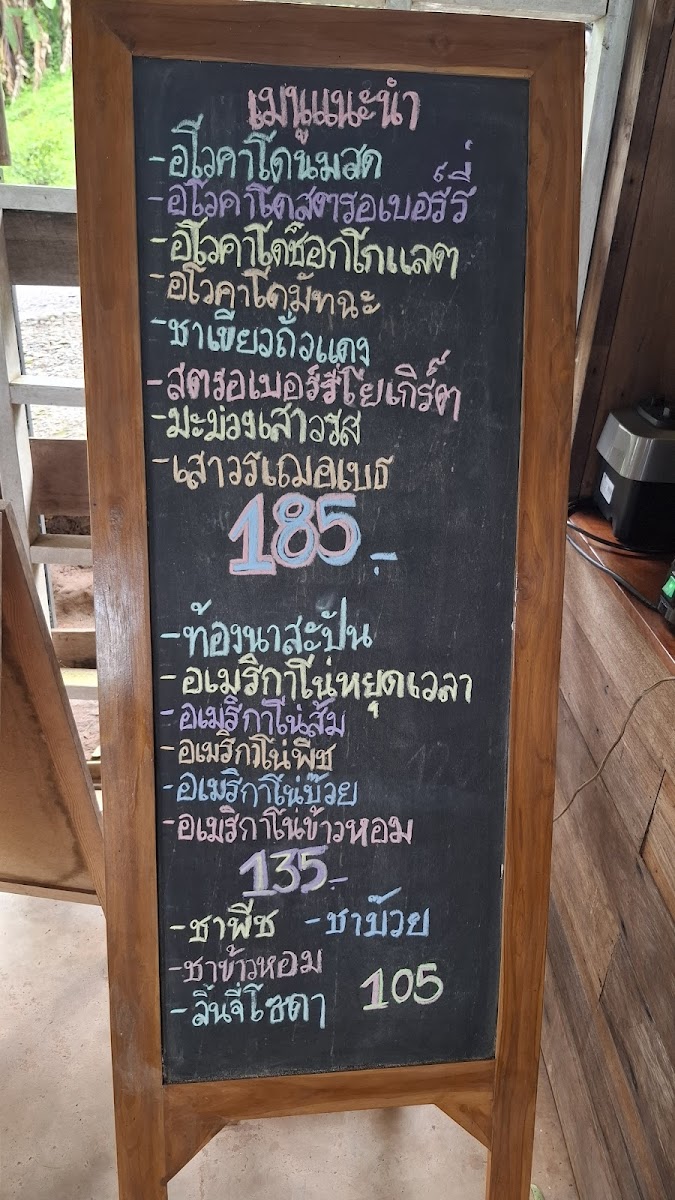 เมนูแนะนำ
-อโวคาโดนมสด
-อโวคาโดสตรอเบอร์รี่
-อโวคาโดช็อกโกแลต
-อโวคาโดมัทฉะ
-ชาเขียวถั่วแดง
-สตรอเบอร์รี่โยเกิร์ต
-มะม่วงเสาวรส
-เสาวรสเฌอเบธ
185.-
-ท้องนาสะปัน
-อเมริกาโน่หยุดเวลา
-อเมริกาโน่ส้ม
-อเมริกาโน่พีช
-อเมริกาโน่บ๊วย
-อเมริกาโน่ข้าวหอม
135.-
-ชาพีช -ชาบ๊วย
-ชาข้าวหอม
105
-ลิ้นจี่โซดา